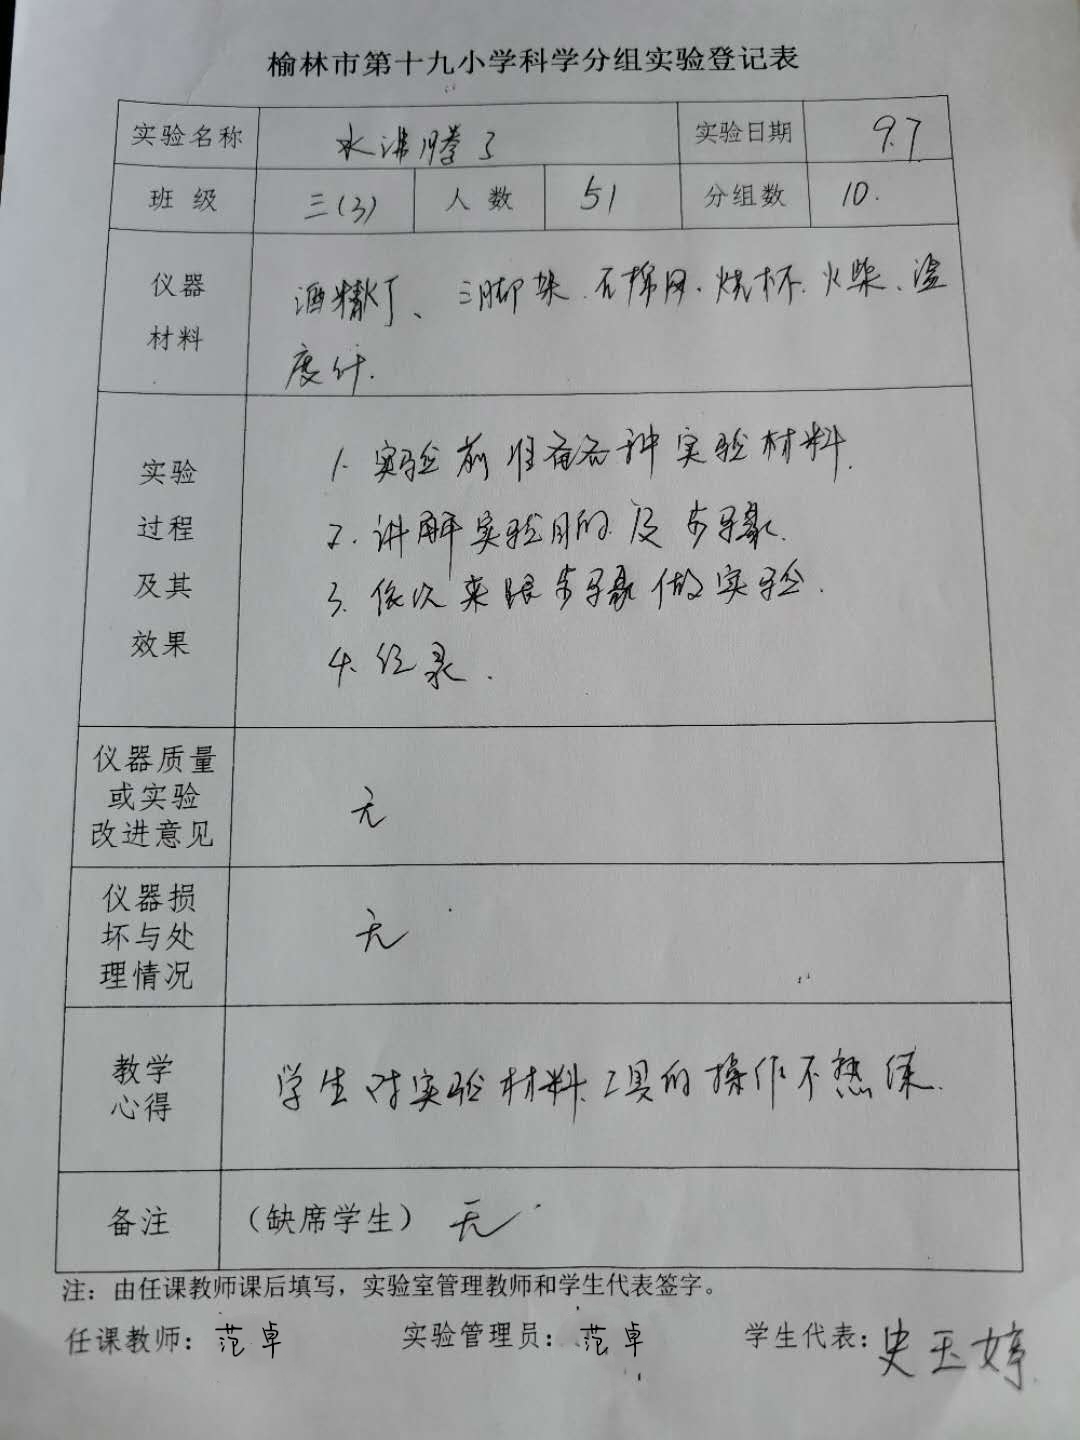 榆林市第十九小学科学分组实验登记表
实验名称 水沸腾了 实验日期 9.7
班级 三(3) 人数 51 分组数 10.
仪器
材料
酒精灯、三脚架、石棉网、烧杯、火柴、温
度计.
实验
过程
及其
效果
1. 实验前准备各种实验材料.
2. 讲解实验目的及步骤.
3. 依次来跟步骤做实验.
4. 记录.
仪器质量
或实验
改进意见
无
仪器损
坏与处
理情况
无
教学
心得
学生对实验材料、工具的操作不熟练.
备注 (缺席学生) 无
注：由任课教师课后填写，实验室管理教师和学生代表签字。
任课教师：范卓 实验管理员：范卓 学生代表：史玉婷